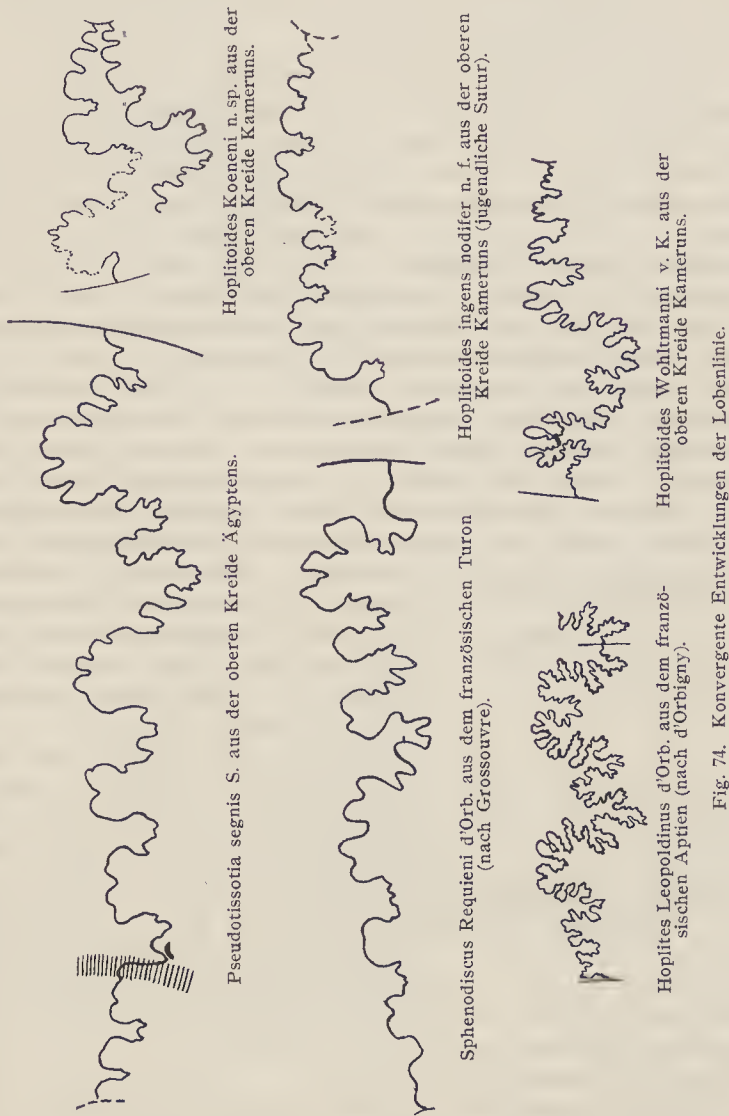 Pseudotissotia segnis S. aus der oberen Kreide Ägyptens.
Hoplitoides Koeneni n. sp. aus der
oberen Kreide Kameruns.
Sphenodiscus Requieni d'Orb. aus dem französischen Turon
(nach Grossouvre).
Hoplitoides ingens nodifer n. f. aus der oberen
Kreide Kameruns (jugendliche Sutur).
Hoplites Leopoldinus d'Orb. aus dem franzö-
sischen Aptien (nach d'Orbigny).
Hoplitoides Wohltmanni v. K. aus der
oberen Kreide Kameruns.
Fig. 74. Konvergente Entwicklungen der Lobenlinie.